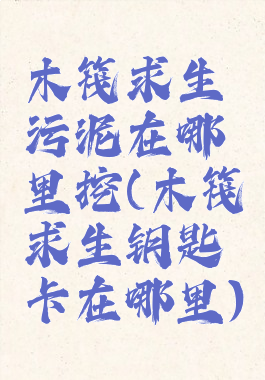 木筏求生
污泥在哪
里挖(木筏
求生钥匙
卡在哪里)